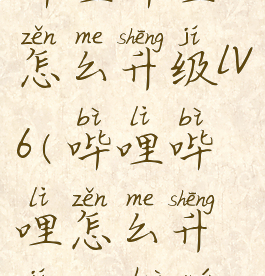 zěn me shēng jí
怎么升级lV
bì li bì
6(哔哩哔
li zěn me shēng
哩怎么升